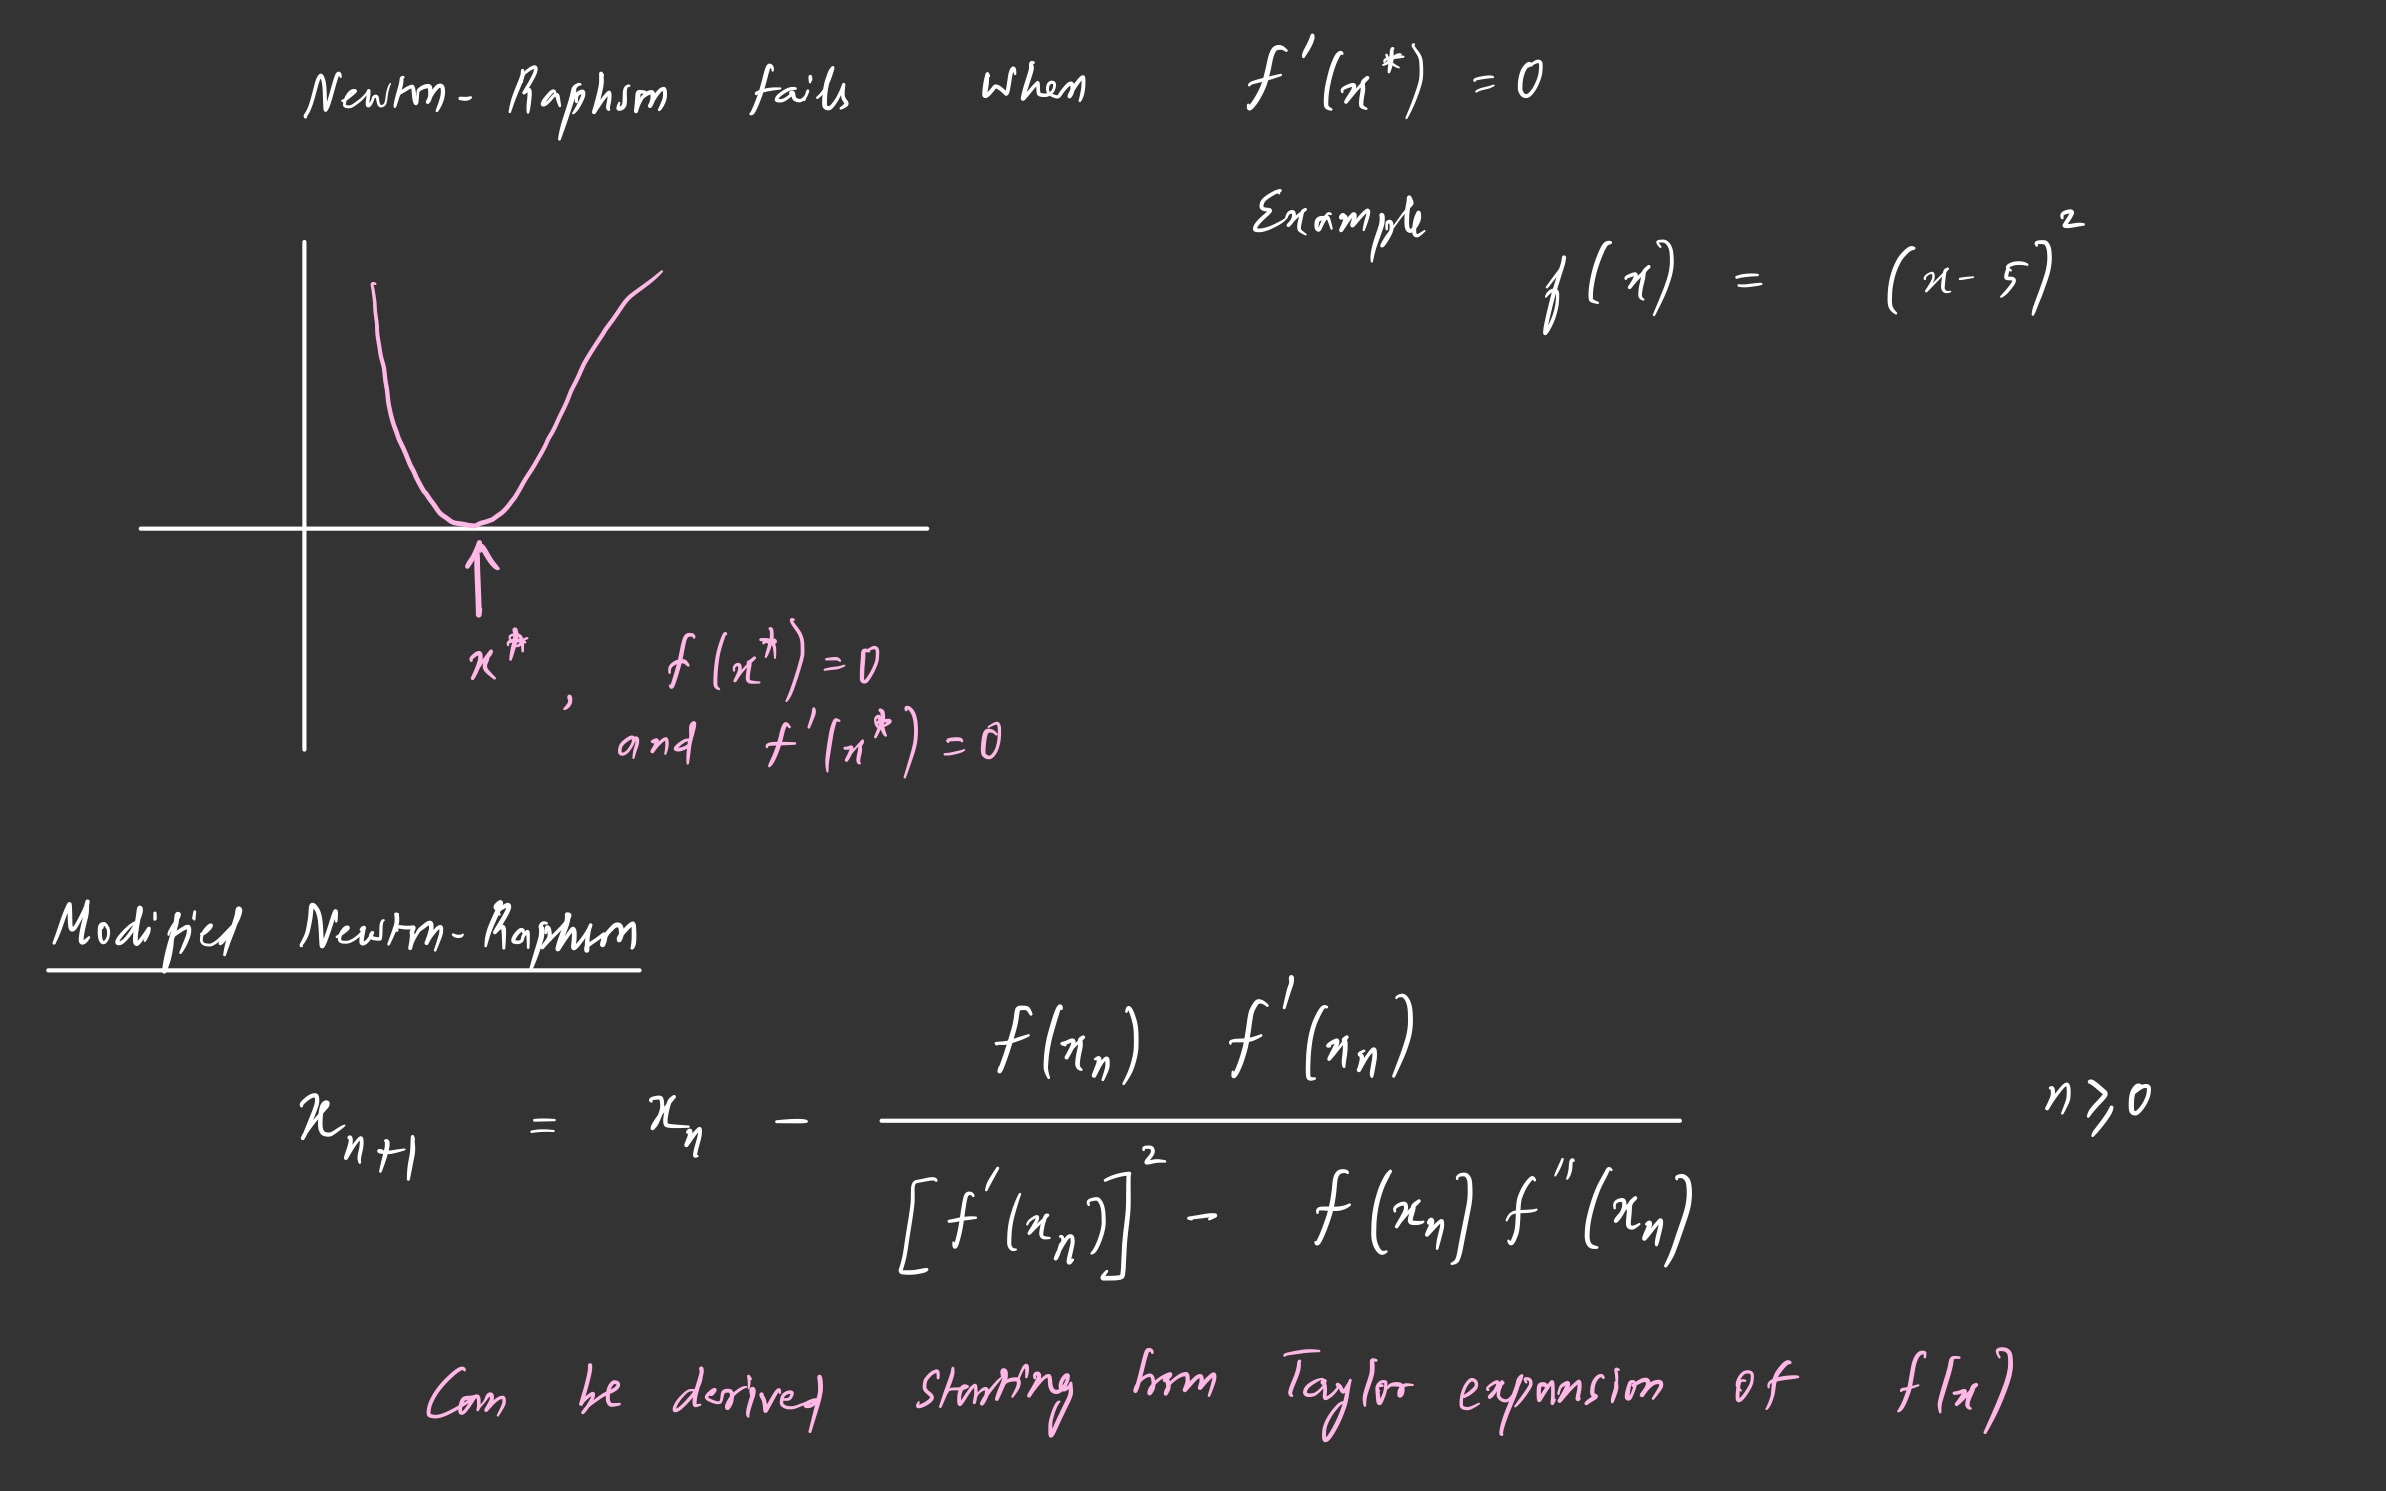 Newton-Raphson fails when f'(x*) = 0
Example
f(x) = (x-5)²
x*, f(x*) = 0
and f'(x*) = 0
Modified Newton-Raphson
f(xₙ) f'(xₙ)
xₙ₊₁ = xₙ - ——— n ⩾ 0
[f'(xₙ)]² - f(xₙ) f''(xₙ)
Can be derived starting from Taylor expansion of f(x)